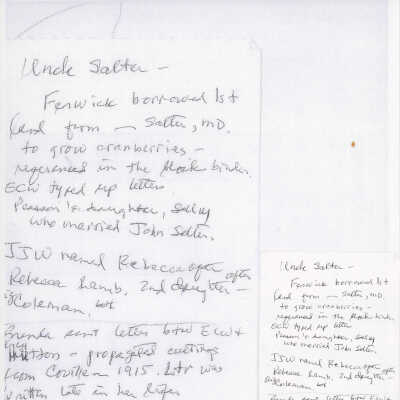 Uncle Salter -
Fenwick borrowed 1st
land from - Salter, MD.
to grow cranberries -
referenced in the black binder.
ECW typed up letters.
Pearson's daughter, Salley
who married John Salter.
JJW named Rebecca after
Rebecca Lamb, 2nd daughter -
Coleman.
Brenda sent letter btw ECW &
- propagated cuttings
from Coville 1915. Ltr was
written late in her life
Uncle Salter -
Fenwick borrowed 1st
land from - Salter, MD.
to grow cranberries -
referenced in the black binder.
ECW typed up letters.
Pearson's daughter, Salley
who married John Salter.
JJW named Rebecca after
Rebecca Lamb, 2nd daughter -
Coleman.
Brenda sent letter btw ECW &